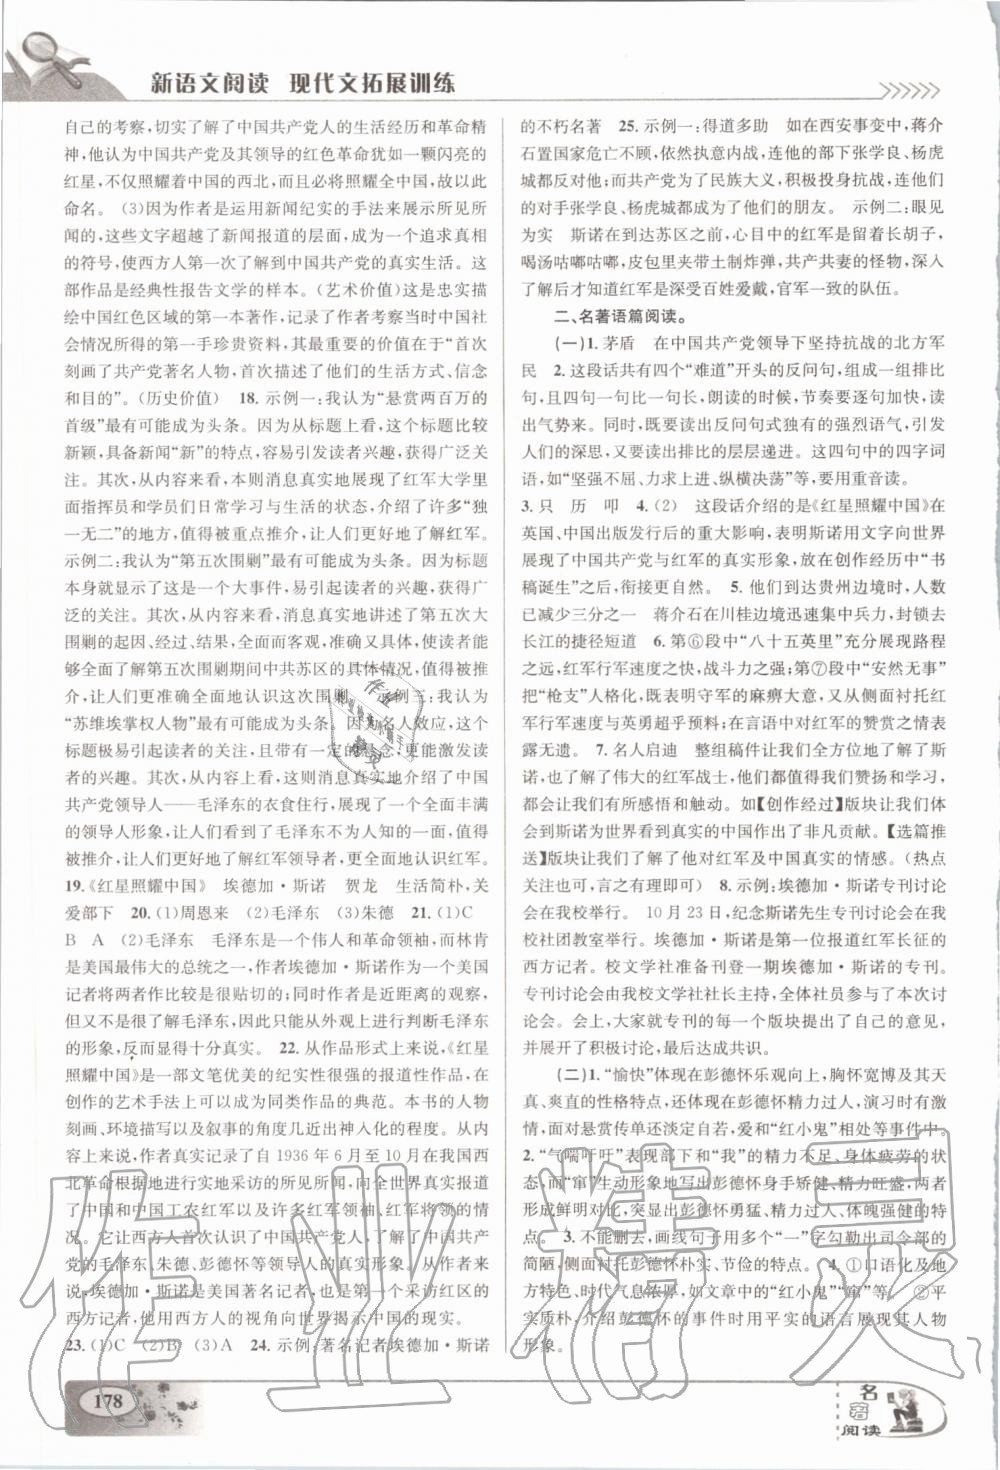 新语文阅读 现代文拓展训练
自己的考察,切实了解了中国共产党人的生活经历和革命精
神,他认为中国共产党及其领导的红色革命犹如一颗闪亮的
红星,不仅照耀着中国的西北,而且必将照耀全中国,故以此
命名。 (3)因为作者是运用新闻纪实的手法来展示所见所
闻的,这些文字超越了新闻报道的层面,成为一个追求真相
的符号,使西方人第一次了解到中国共产党的真实生活。这
部作品是经典性报告文学的样本。(艺术价值)这是忠实描
绘中国红色区域的第一本著作,记录了作者考察当时中国社
会情况所得的第一手珍贵资料,其最重要的价值在于“首次
刻画了共产党著名人物,首次描述了他们的生活方式、信念
和目的”。(历史价值) 18. 示例一:我认为“悬赏两百万的
首级”最有可能成为头条。因为从标题上看,这个标题较为
新颖,具备新闻“新”的特点,容易引起读者兴趣,获得广泛关
注。从内容来看,本则消息真实地展现了红军大学里
面指挥员和学员们日常学习与生活的状态,介绍了许多“独
一无二”的地方,值得被重点推介,让人们更好了解红军。
示例二:我认为“第五次围剿”最有可能成为头条。因为标题
本身就显示了这是一个大事件,易引起读者的兴趣,获得广
泛的关注。其次,从内容来看,消息真实地讲述了第五次大
围剿的起因、经过、结果,全面而客观,准确而详实,使读者能
够全面了解第五次围剿期间中共苏区的具体情况,值得被推
介,让人们更全面地认识这次围剿。 示例三:我认为
“苏维埃掌权人物”最有可能成为头条。因为名人效应,这个
标题极易引起读者的关注,且带有一定悬念,更能激发读者
的兴趣。从内容上看,这则消息真实地介绍了中国
共产党领导人——毛泽东的衣食住行,展现了一个全面丰满
的领导人形象,让人们看到了毛泽东不为人知的一面,值得
被推介,让人们更好地了解红军领导者,更全面认识红军。
19.《红星照耀中国》 埃德加·斯诺 贺龙 生活简朴,关
爱部下 20. (1)周恩来 (2)毛泽东 (3)朱德 21. (1)C
B A (2)毛泽东 毛泽东是一个伟人和革命领袖,而林肯
是美国最伟大的总统之一,作者埃德加·斯诺作为一个美国
记者将两者作比较是很贴切的;同时作者是近距离的观察,
但又不是很了解毛泽东,因此只能从外观上进行判断毛泽东
的形象,反而显得十分真实。 22. 从作品形式上来说,《红星
照耀中国》是一部文笔优美的纪实性很强的报道性作品,在
创作的艺术手法上可以成为同类作品的典范。本书的人物
刻画、环境描写以及叙事的角度几近出神入化的程度。从内
容上来说,作者真实记录了自 1936 年 6 月至 10 月在我国西
北革命根据地进行实地采访的所见所闻,向全世界真实报道
了中国和中国工农红军以及许多红军领袖、红军将领的情
况。它让西方人首次认识了中国共产党人,了解了中国共产
党的毛泽东、朱德、彭德怀等领导人的真实形象。从作者来
说,埃德加·斯诺是美国著名记者,也是第一个采访红区的
西方记者,他用西方人的视角向世界揭示中国的现实。
23. (1)C (2)B (3)A 24. 示例:著名记者埃德加·斯诺
的不朽名著 25. 示例一:得道多助 如在西安事变中,蒋介
石置国家危亡不顾,依然执意内战,连他的部下张学良、杨虎
城都反对他;而共产党为了民族大义,积极投身抗战,连他们
的对手张学良、杨虎城都成了他们的朋友。 示例二:眼见
为实 斯诺在到达苏区之前,心目中的红军是留着长胡子,
喝汤咕嘟咕嘟,皮包里夹带土制炸弹,共产共妻的怪物,深入
了解后才知道红军是深受百姓爱戴,官军一致的队伍。
二、名著语篇阅读。
(一)1. 茅盾 在中国共产党领导下坚持抗战的北方军
民 2. 这段话共有四个“难道”开头的反问句,组成一组排比
句,且四句一句比一句长,朗读的时候,节奏要逐步加快,读
出气势来。同时,既要读出反问句式独有的强烈语气,引发
人们的深思,又要读出排比的层层递进。这四句中的四字词
语,如“坚强不屈、力求上进、纵横决荡”等,要用重音读。
3. 只 历 叩 4. (2) 这段话介绍的是《红星照耀中国》在
英国、中国出版发行后的重大影响,表明斯诺用文字向世界
展现了中国共产党与红军的真实形象,放在创作经历中“书
稿诞生”之后,衔接更自然。 5. 他们到达贵州边境时,人数
已减少三分之一 蒋介石在川桂边境迅速集中兵力,封锁去
长江的捷径短道 6. 第⑥段中“八十五英里”充分展现路程
之远,红军行军速度之快,战斗力之强;第⑦段中“安然无事”
把“枪支”人格化,既表明守军的麻痹大意,又从侧面衬托红
军行军速度与英勇超乎预料;在言语中对红军的赞赏之情表
露无遗。 7. 名人启迪 整组稿件让我们全方位地了解了斯
诺,也了解了伟大的红军战士,他们都值得我们赞扬和学习,
都会让我们有所感悟和触动。如【创作经过】版块让我们体
会到斯诺为世界看到真实的中国作出了非凡贡献。【选篇推
送】版块让我们了解了他对红军及中国真实的情感。(热点
关注也可,言之有理即可) 8. 示例:埃德加·斯诺专刊讨论
会在我校举行。 10 月 23 日,纪念斯诺先生专刊讨论会在我
校社团教室举行。埃德加·斯诺是第一位报道红军长征的
西方记者。校文学社准备刊登一期埃德加·斯诺的专刊。
专刊讨论会由我校文学社社长主持,全体社员参与了本次讨
论会。会上,大家就专刊的每一个版块提出了自己的意见,
并展开了积极讨论,最后达成共识。
(二)1. “愉快”体现在彭德怀乐观向上,胸怀宽博及其天
真、爽直的性格特点,还体现在彭德怀精力过人,演习时有激
情,的悬赏传单还天真大度,爱和“红小鬼”相处等事件中。
2. “气喘吁吁”表现部下和“我”的精力不足、身体疲劳的状
态,而“窜”生动形象地写出彭德怀身手矫健、精力旺盛,两者
形成鲜明对比,突显出彭德怀勇猛、精力过人、体魄强健的特
点。 3. 不能删去,画线句子用多个“一”字勾勒出司令部的
简陋,侧面衬托彭德怀朴实、节俭的特点。 4. ①口语化及地
方特色、时代气息浓厚,如文章中的“红小鬼”“窜”等。 ②平
实质朴,介绍彭德怀的事件时用平实的语言展现其人物
形象。
178
名著阅读
作业精灵